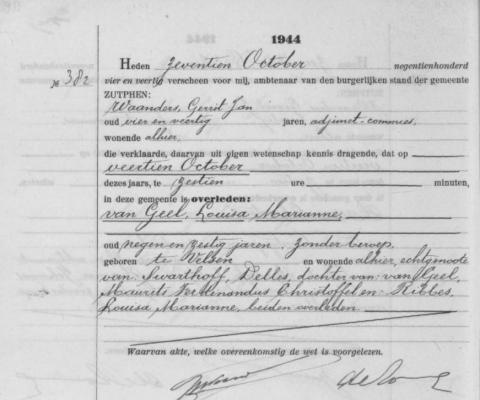 1944
Heden zeventien October negentienhonderd
№ 382
vier en veertig verscheen voor mij, ambtenaar van den burgerlijken stand der gemeente
ZUTPHEN:
Waanders, Gerrit Jan
oud vier en veertig jaren, adjunct-commies,
wonende alhier,
die verklaarde, daarvan uit eigen wetenschap kennis dragende, dat op
veertien October
dezes jaars, te zestien ure minuten,
in deze gemeente is overleden:
van Geel, Louisa Marianne,
oud negen en zestig jaren, zonder beroep,
geboren te Velsen en wonende alhier, echtgenoote
van Swarthoff, Delles, dochter van van Geel,
Maurits Ferdinandus Christoffel en Ribbes,
Louisa Marianne, beiden overleden.
Waarvan akte, welke overeenkomstig de wet is voorgelezen.